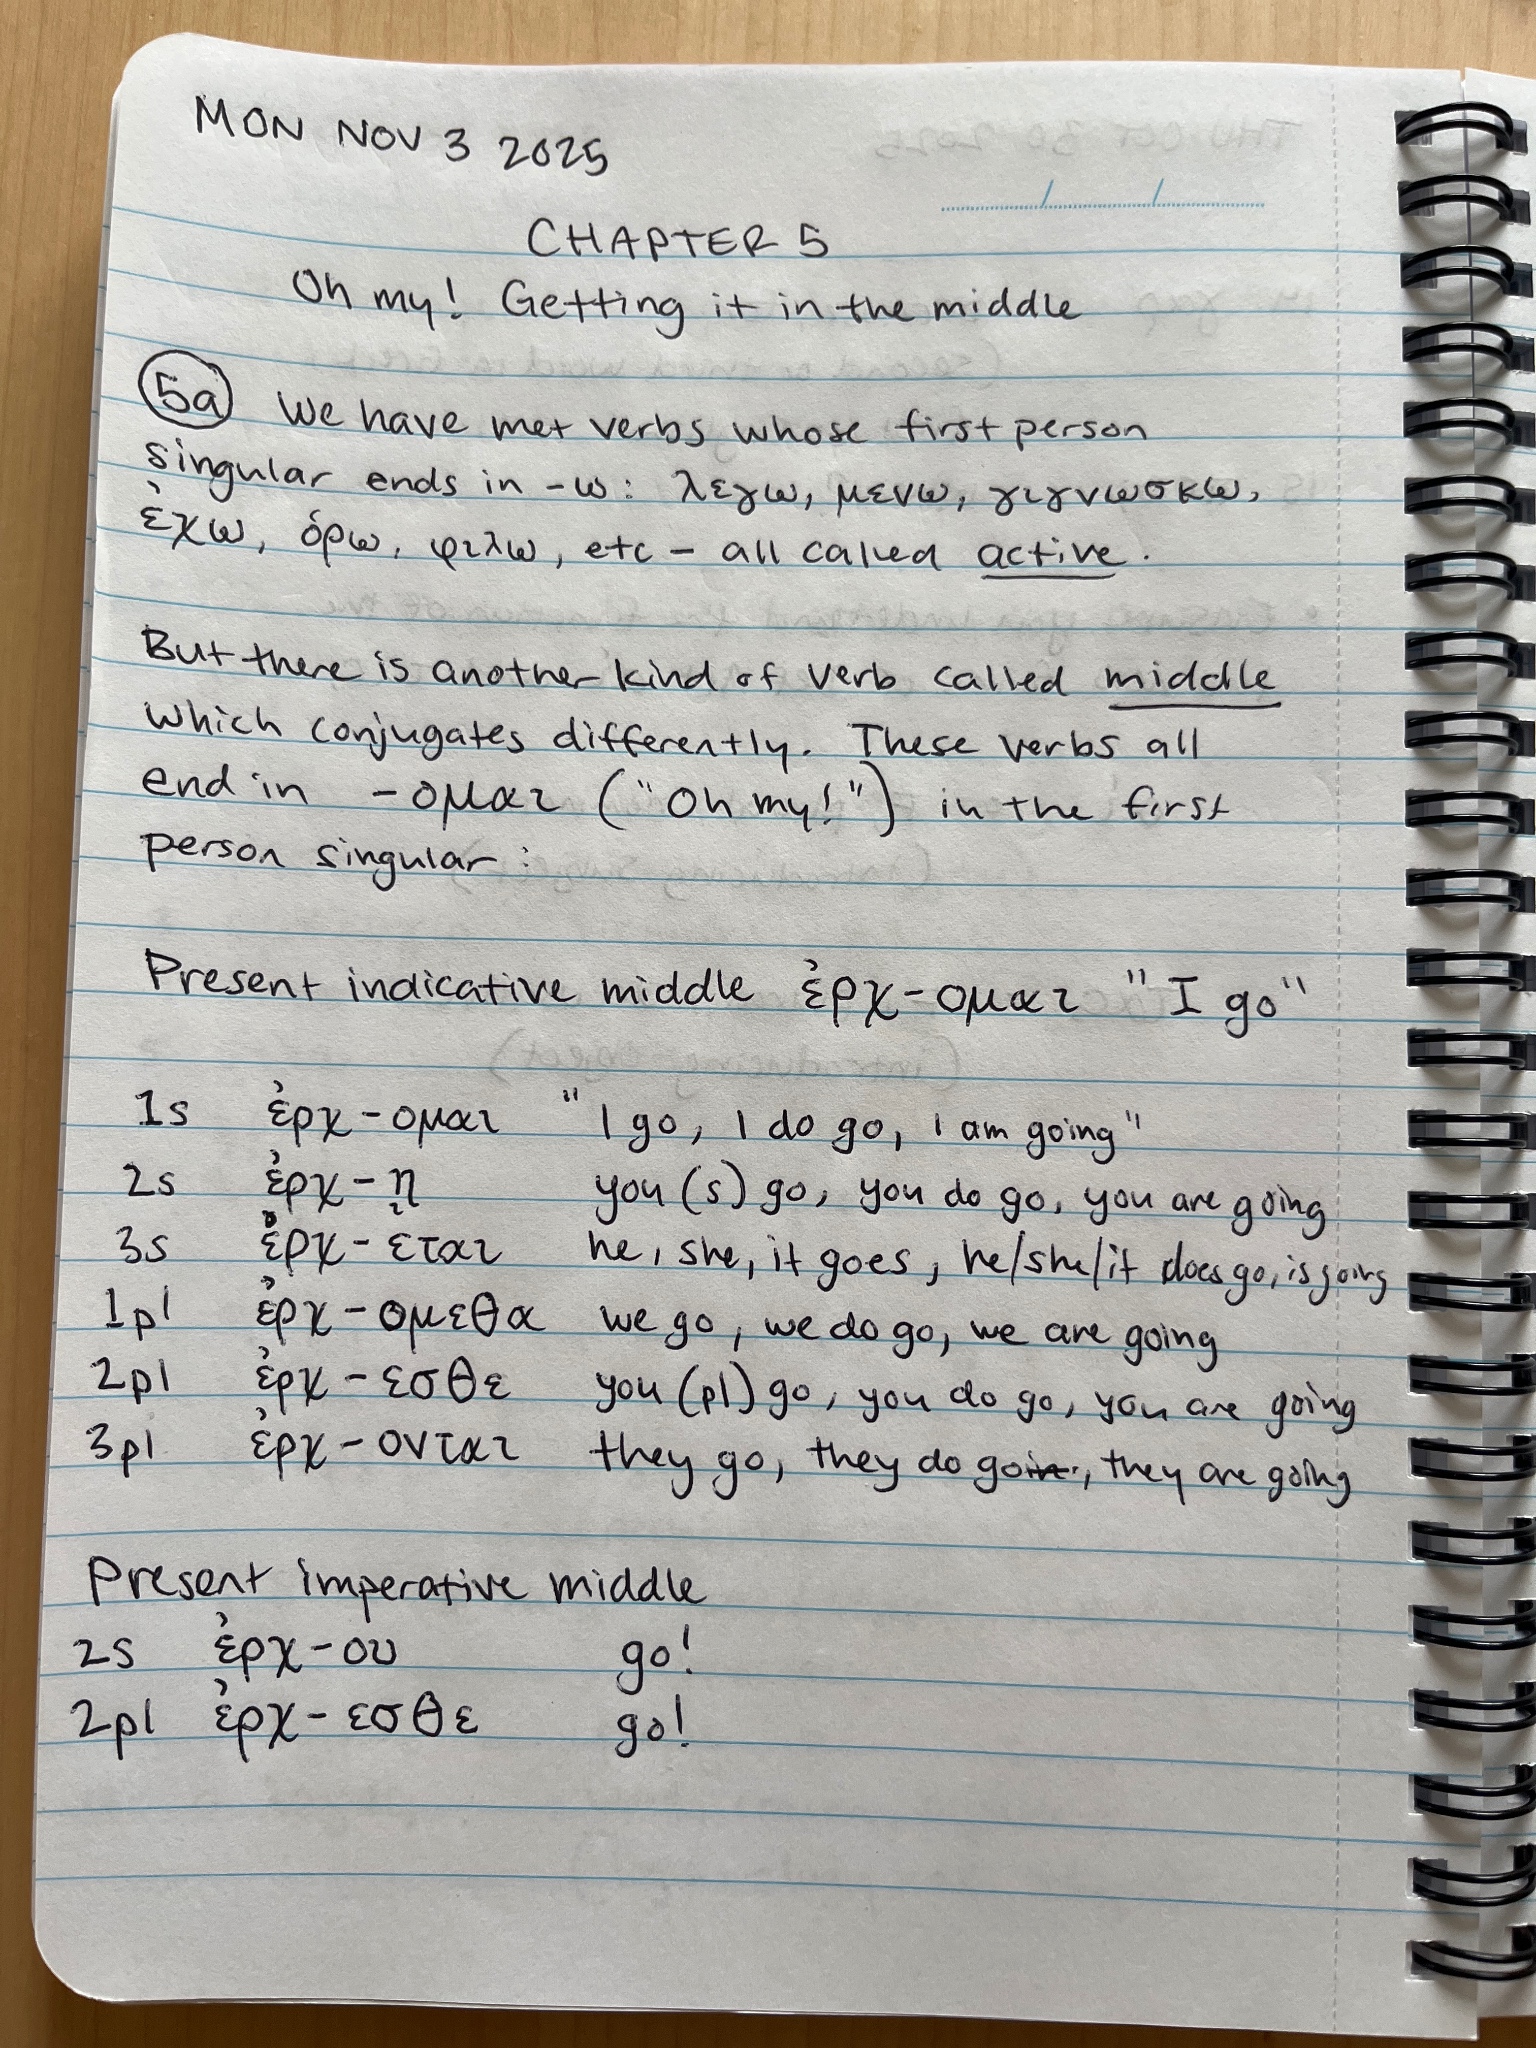 MON NOV 3 2025
CHAPTER 5
Oh my! Getting it in the middle
5a We have met verbs whose first person
singular ends in -ω: λεγω, μενω, γιγνωσκω,
ἐχω, ὁρω, φιλω, etc - all called active.
But there is another kind of verb called middle
which conjugates differently. These verbs all
end in -ομαι ("Oh my!") in the first
person singular:
Present indicative middle ἐρχ-ομαι "I go"
1s ἐρχ-ομαι "I go, I do go, I am going"
2s ἐρχ-ῃ you (s) go, you do go, you are going
3s ἐρχ-εται he, she, it goes, he/she/it does go, is going
1pl ἐρχ-ομεθα we go, we do go, we are going
2pl ἐρχ-εσθε you (pl) go, you do go, you are going
3pl ἐρχ-ονται they go, they do go, they are going
Present imperative middle
2s ἐρχ-ου go!
2pl ἐρχ-εσθε go!